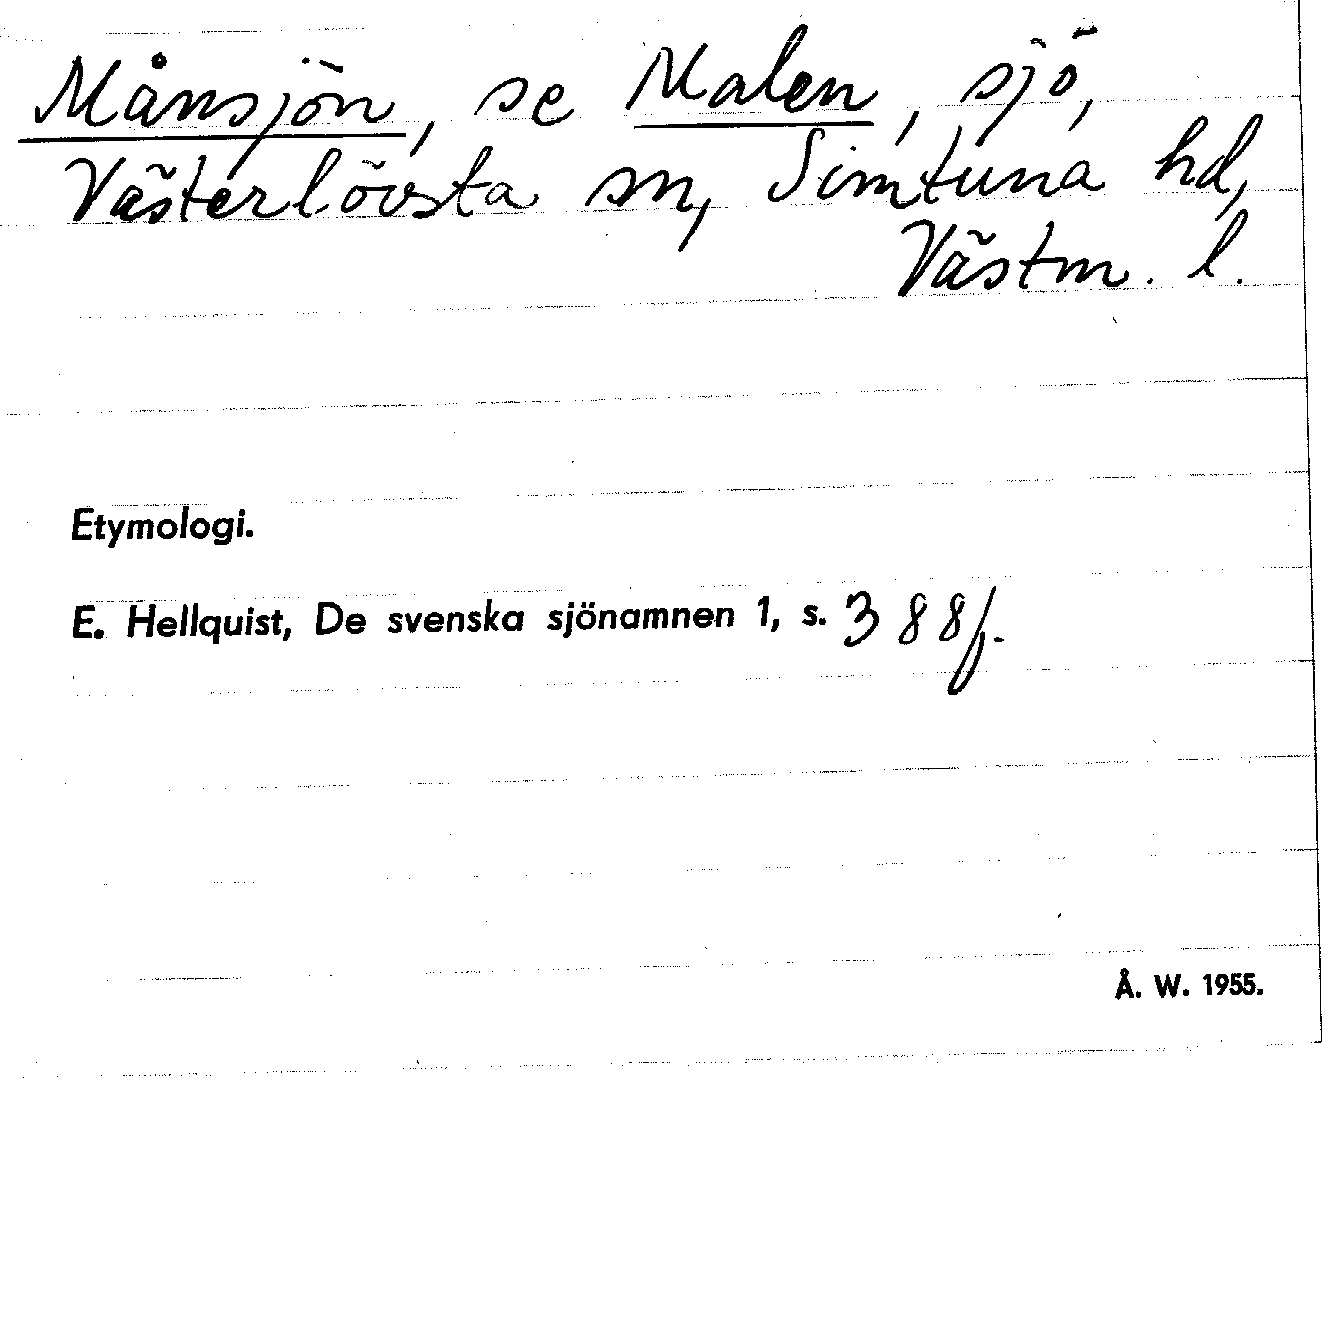 Månsjön, se Malen, sjö,
Västerlövsta sn, Simtuna hd,
Västm. l.
Etymologi.
E. Hellquist, De svenska sjönamnen 1, s. 388f.
Å. W. 1955.